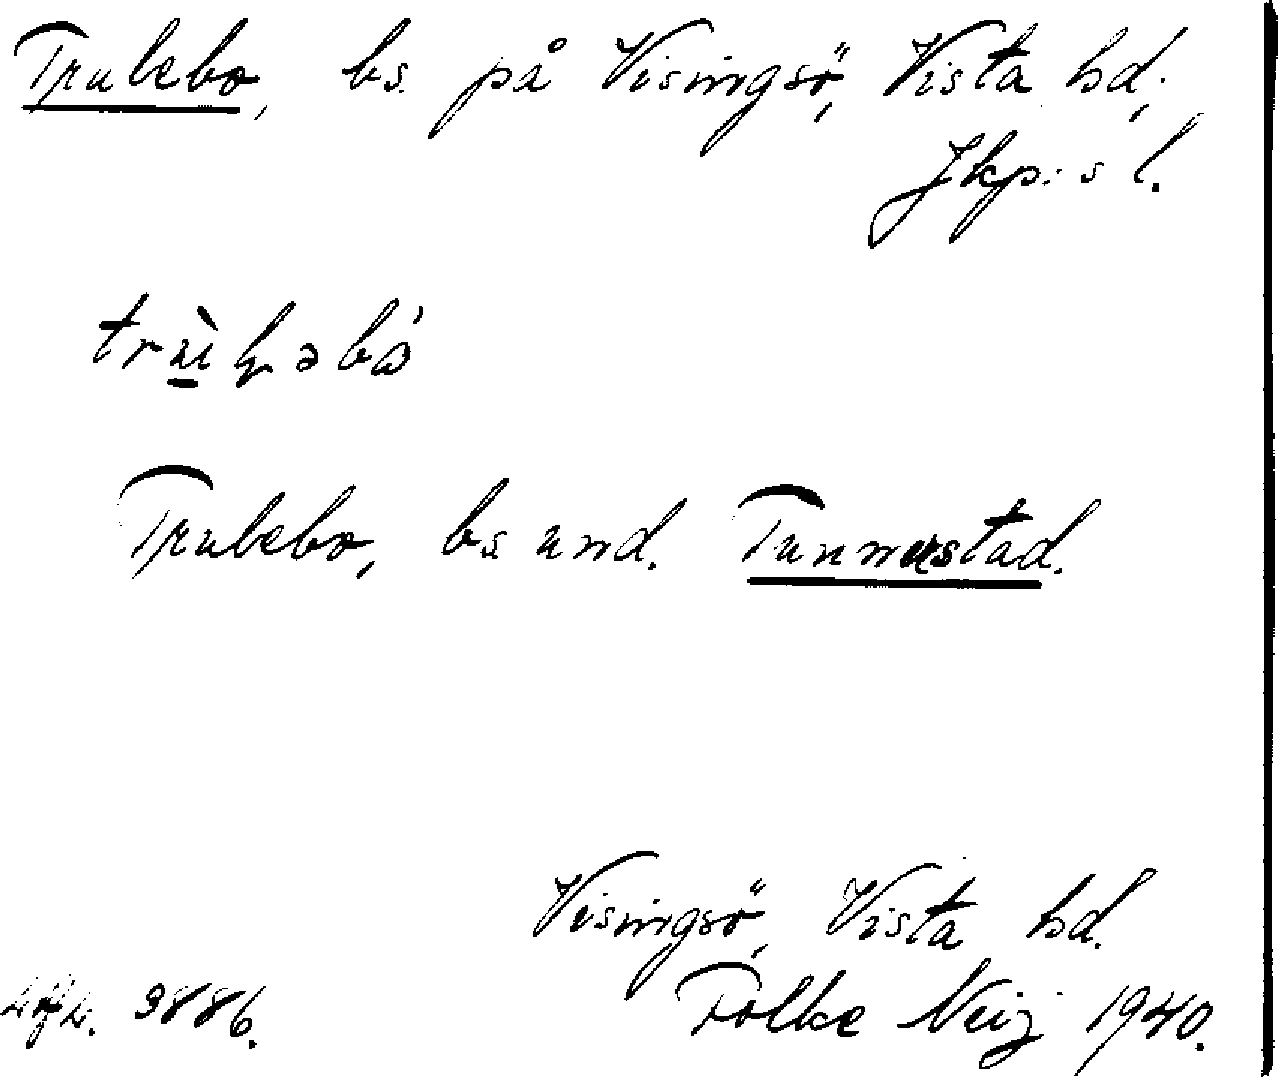 Trulebo, bs. på Visingsö, Vista hd;
Jkp:s l.
Trulebo, bs und. Tunnerstad.
Visingsö, Vista hd.
3886. Folke Neij 1940.